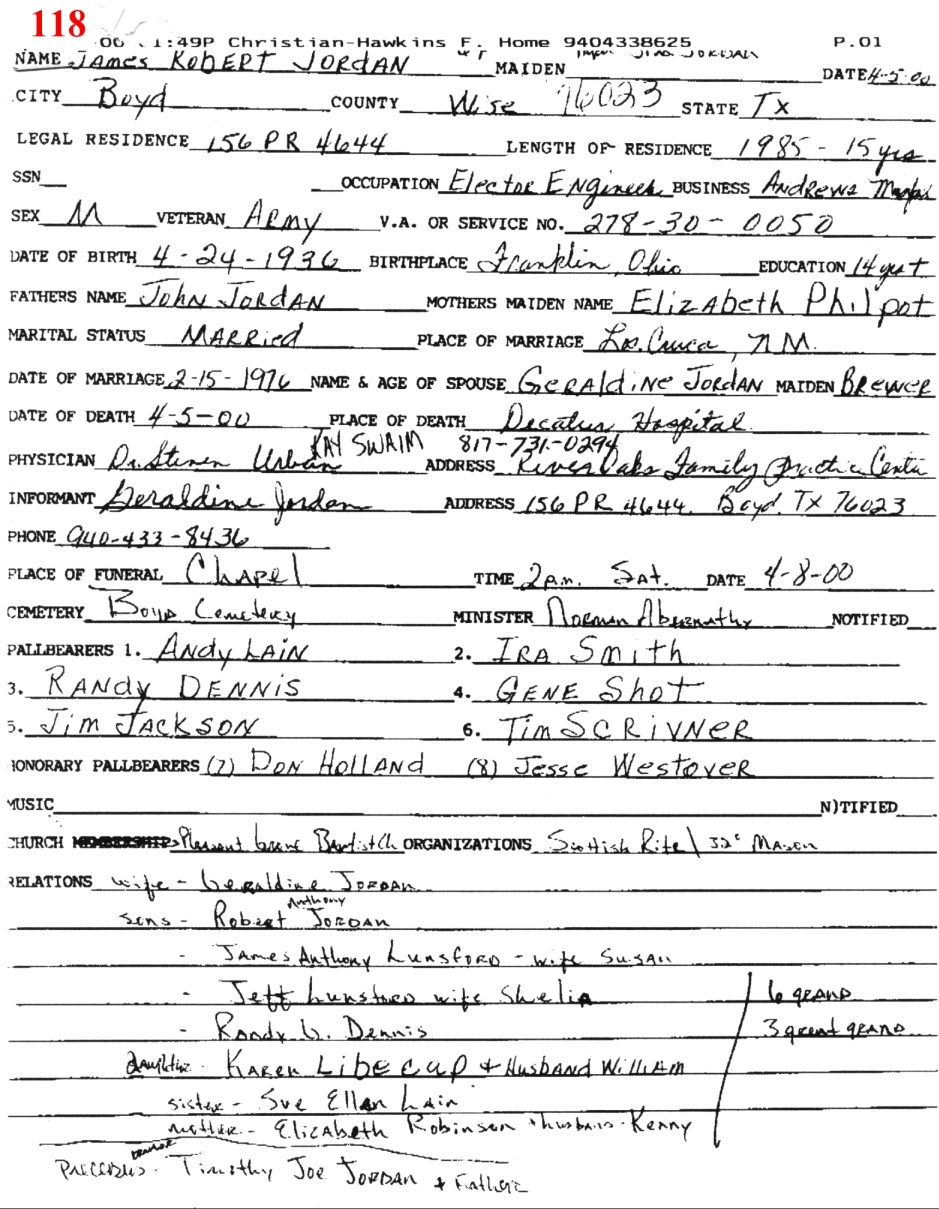 118
00 1:49P Christian-Hawkins F. Home 9404338625 P.01
NAME James Robert Jordan MAIDEN DATE 4-5-00
CITY Boyd COUNTY Wise 76023 STATE Tx
LEGAL RESIDENCE 156 PR 4644 LENGTH OF RESIDENCE 1985 - 15 yrs
SSN OCCUPATION Elector Engineer BUSINESS Andrews
SEX M VETERAN Army V.A. OR SERVICE NO. 278-30-0050
DATE OF BIRTH 4-24-1936 BIRTHPLACE Franklin, Ohio EDUCATION 14 yrs +
FATHERS NAME John Jordan MOTHERS MAIDEN NAME Elizabeth Philpot
MARITAL STATUS Married PLACE OF MARRIAGE Los. Cruca, N.M.
DATE OF MARRIAGE 2-15-1976 NAME & AGE OF SPOUSE Geraldine Jordan MAIDEN Brewer
DATE OF DEATH 4-5-00 PLACE OF DEATH Decatur Hospital
Kay Swaim 817-731-0294
PHYSICIAN Dr. Steven Urban ADDRESS River Oaks Family Practice Center
INFORMANT Geraldine Jordan ADDRESS 156 PR 4644. Boyd, TX 76023
PHONE 940-433-8436
PLACE OF FUNERAL Chapel TIME 2 p.m. Sat. DATE 4-8-00
CEMETERY Boyd Cemetery MINISTER Norman Abernathy NOTIFIED
PALLBEARERS 1. Andy Lain 2. Ira Smith
3. Randy Dennis 4. Gene Shot
5. Jim Jackson 6. Tim Scrivner
HONORARY PALLBEARERS (7) Don Holland (8) Jesse Westover
MUSIC N)TIFIED
CHURCH MEMBERSHIP Pleasant Grove Baptist Ch ORGANIZATIONS Scottish Rite \ 32° Mason
RELATIONS wife - Geraldine Jordan
sons - Robert Anthony Jordan
- James Anthony Lunsford - wife Susan
- Jeff Lunsford wife Shelia 6 grand
- Randy G. Dennis 3 great grand
daughter - Karen Libecap + Husband William
sister - Sue Ellen Lain
mother - Elizabeth Robinson + husband - Kenny
Precedes - brother Timothy Joe Jordan + Father